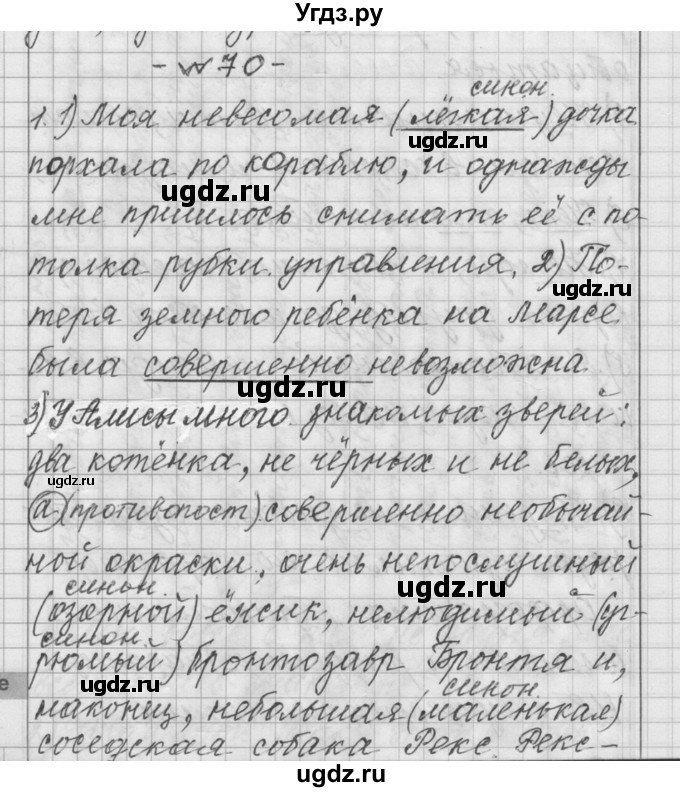 Угдз.ру
- №70 -
синон.
1. 1) Моя невесомая (лёгкая) дочка
ugdz.ru
порхала по кораблю, и однажды
ugdz.ru
мне пришлось снимать её с по-
толка рубки управления. 2) По-
ugdz.ru
теря земного ребёнка на Марсе
была совершенно невозможна.
ugdz.ru
3) У Алисы много знакомых зверей:
два котёнка, не чёрных и не белых,
ugdz.ru
а (противопост) совершенно необычай-
ugdz.ru
ной окраски, очень непослушный
синон.
ugdz.ru
(озорной) ёжик, нелюдимый (уг-
синон.
рюмый) бронтозавр Бронтя и,
ugdz.ru
синон.
наконец, небольшая (маленькая)
соседская собака Рекс. Рекс –
ugdz.ru
е